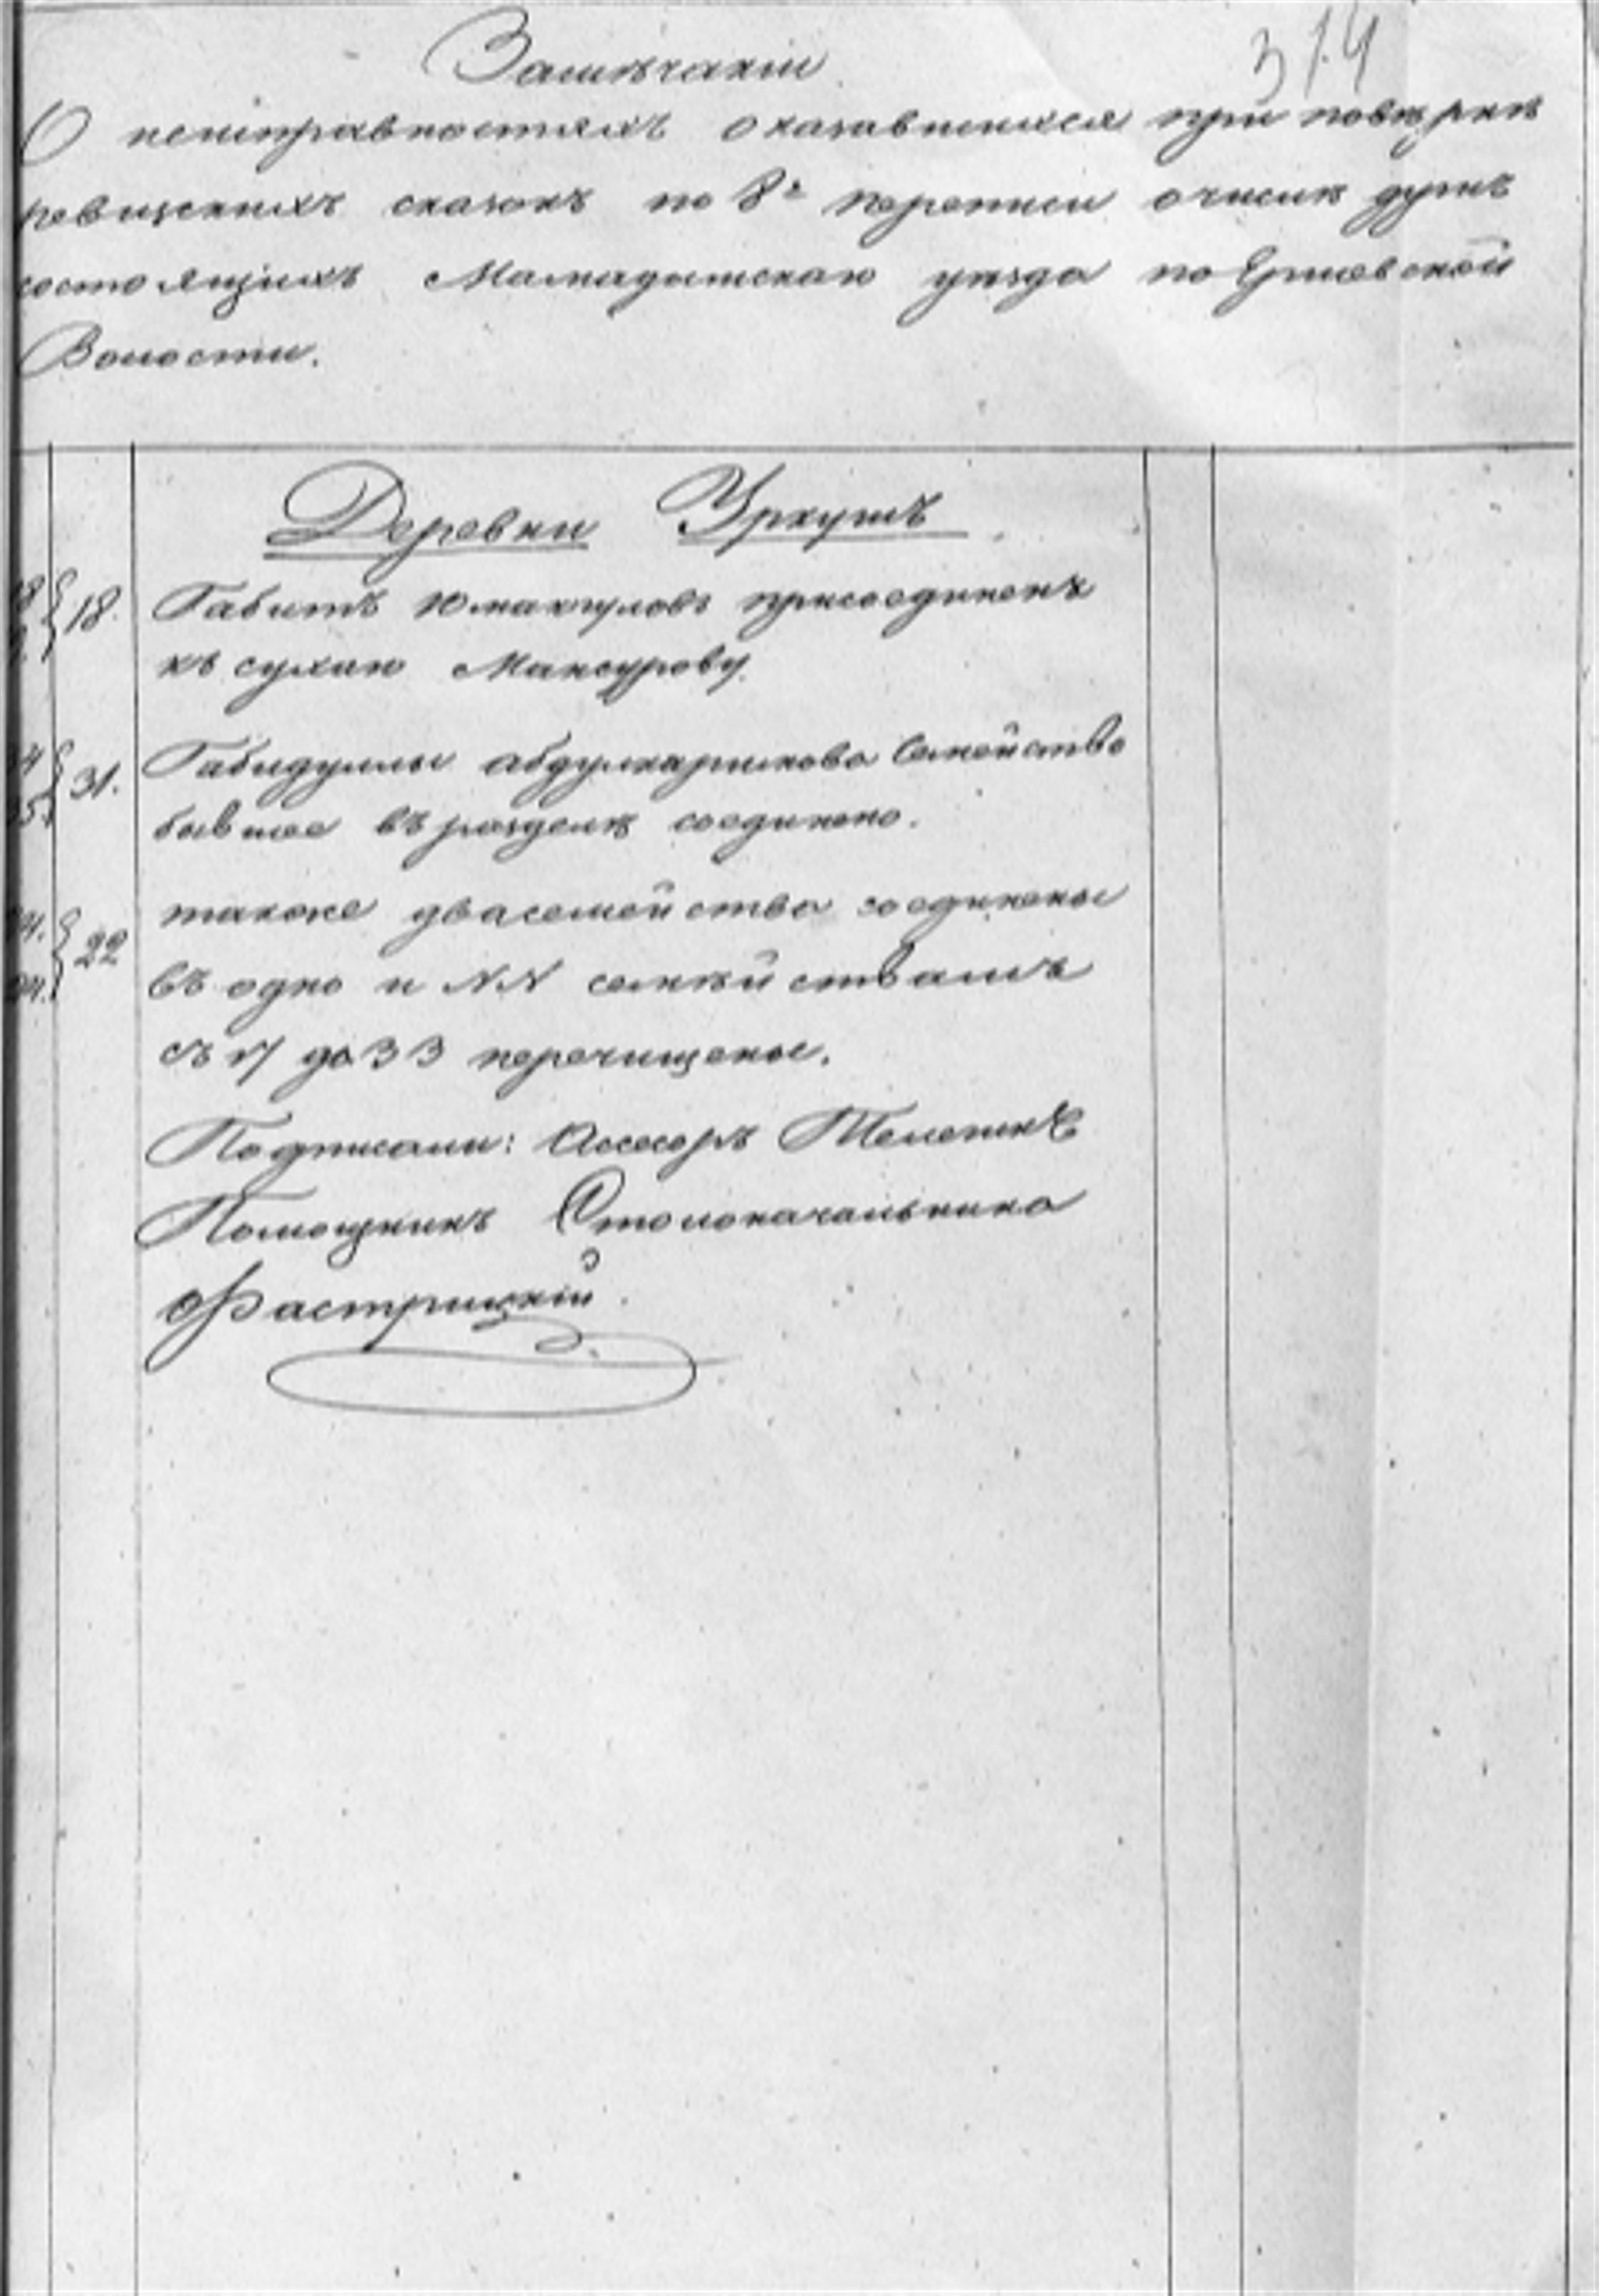 314
Замѣчаніи
О неисправностяхъ оказавшихся при повѣркѣ
ревизскихъ сказокъ по 8й переписи о числѣ душъ
состоящихъ Мамадышскаго уѣзда по Ершовской
Волости.
Деревни Уркушъ
18. Габитъ Юмакуловъ присоединенъ
къ сухаю Мансурову.
31. Габидуллы абдулкаримова Семейство
бывшее въ разделѣ соединено.
также два семейства соединены
22 въ одно и NN семѣйствамъ
съ 17 до 33 перечищены.
Подписали: Ассесоръ
Помощникъ Столоначальника
Фастрицкій.